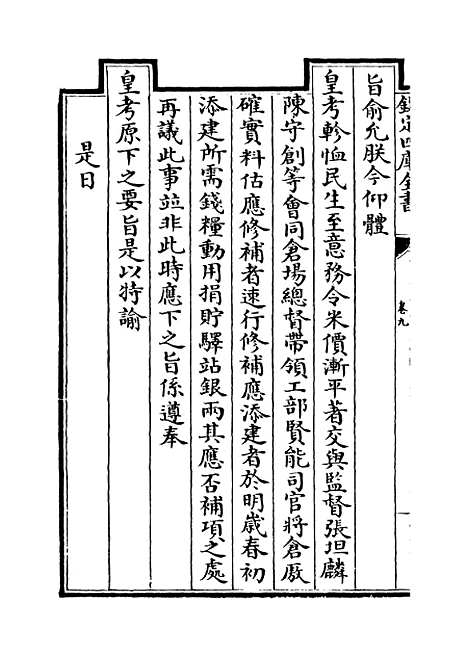 欽定四庫全書
卷九
旨俞允朕今仰體
皇考軫恤民生至意務令米價漸平著交與監督張坦麟
陳守創等會同倉場總督帶領工部賢能司官將倉厫
確實料估應修補者速行修補應添建者於明歳春初
添建所需錢糧動用捐貯驛站銀兩其應否補項之處
再議此事並非此時應下之旨係遵奉
皇考原下之要旨是以特諭
是日